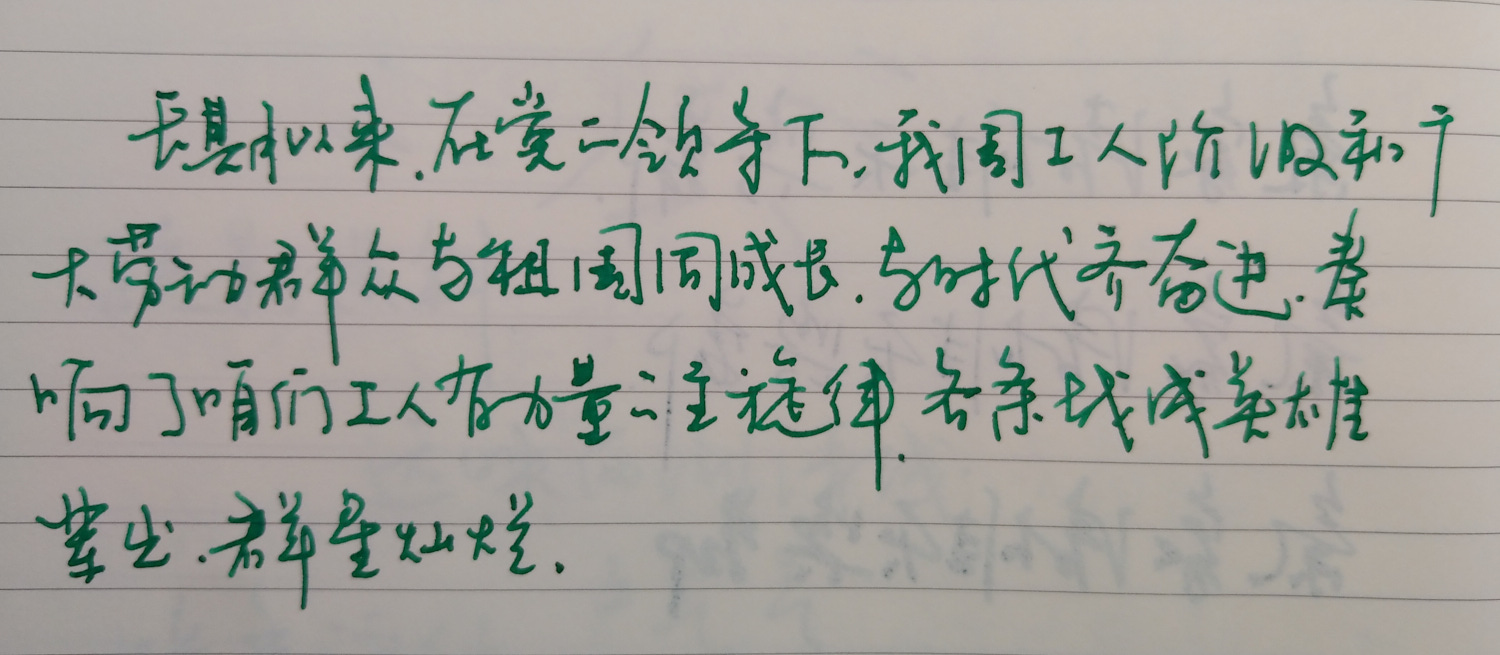 长期以来,在党的领导下,我国工人阶级和广
大劳动群众与祖国同成长,与时代齐奋进,奏
响了咱们工人有力量的主旋律,各条战线英雄
辈出,群星灿烂.